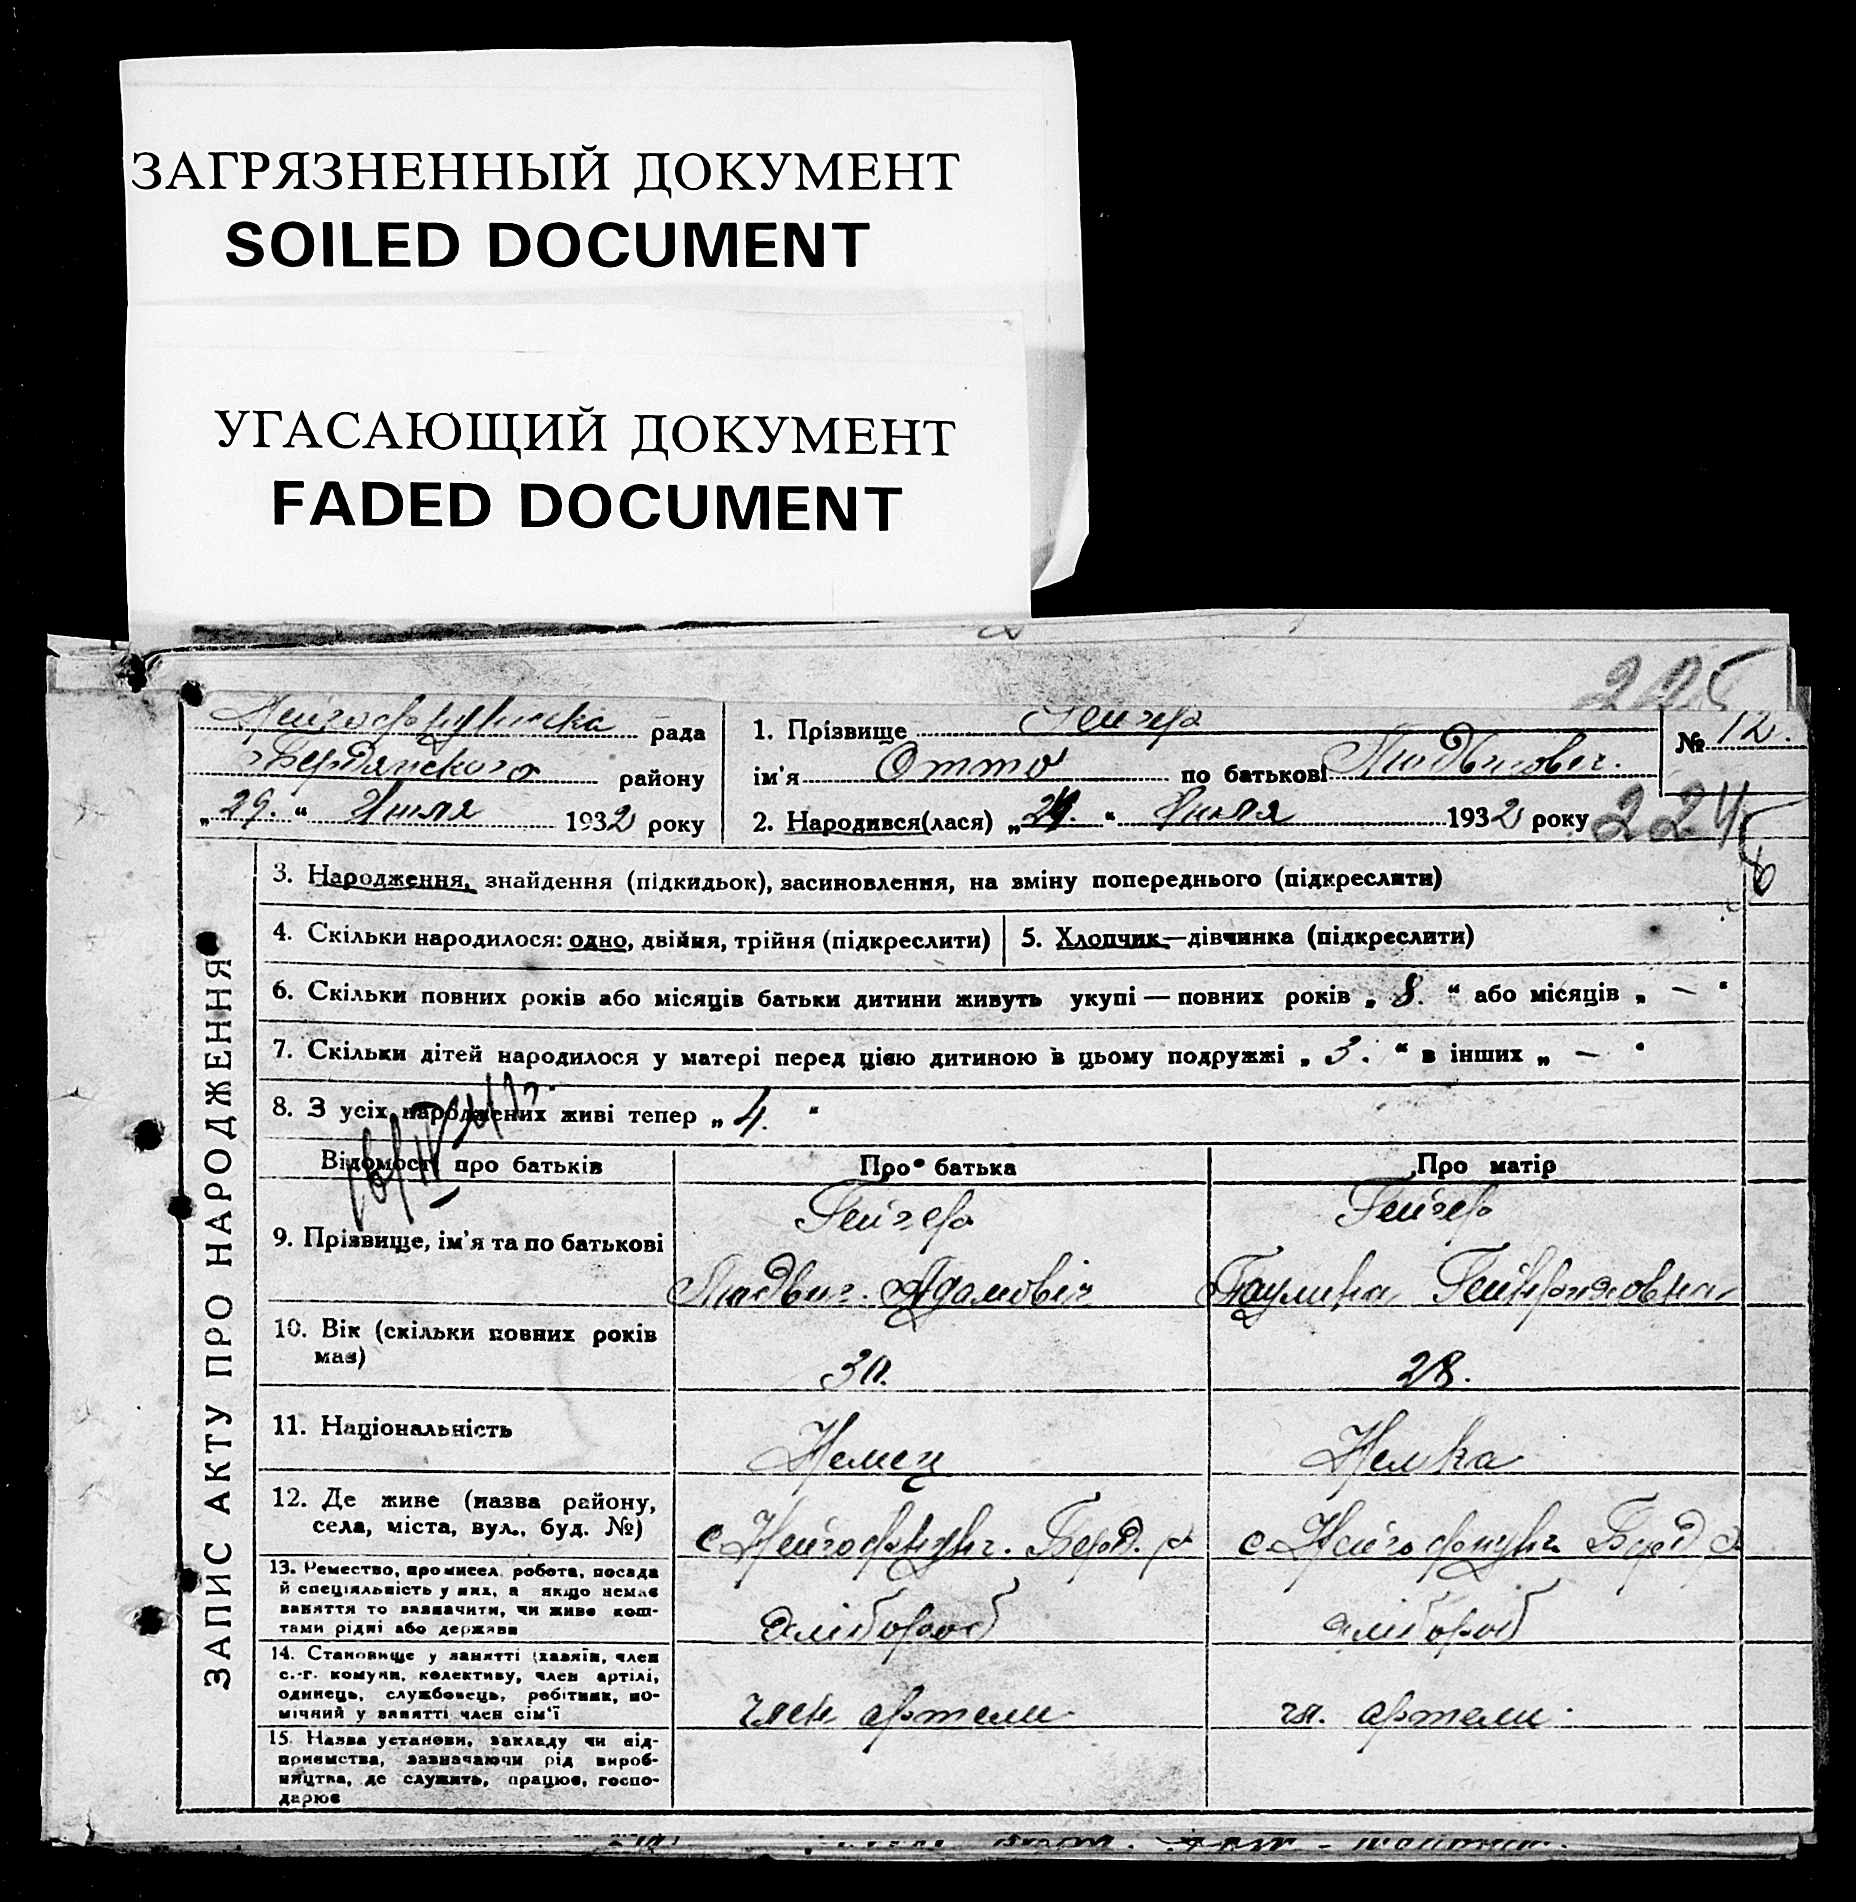 ЗАГРЯЗНЕННЫЙ ДОКУМЕНТ
SOILED DOCUMENT
УГАСАЮЩИЙ ДОКУМЕНТ
FADED DOCUMENT
225
рада
Бердянского району
„29.“ Июля 1932 року
1. Прізвище Гейгер
ім'я Отто по батькові Людвигович.
№ 12.
2. Народився(лася) „ “ Июля 1932 року
224
ЗАПИС АКТУ ПРО НАРОДЖЕННЯ
3. Народження, знайдення (підкидьок), засиновлення, на зміну попереднього (підкреслити)
4. Скільки народилося: одно, двійня, трійня (підкреслити)
5. Хлопчик—дівчинка (підкреслити)
6. Скільки повних років або місяців батьки дитини живуть укупі — повних років „ 8. “ або місяців „ — “
7. Скільки дітей народилося у матері перед цією дитиною в цьому подружжі „ 3. “ в інших „ — “
8. З усіх народжених живі тепер „ 4. “
Відомості про батьків Про батька Про матір
9. Прізвище, ім'я та по батькові
Гейгер
Людвиг Адамовіч
Гейгер
Паулина
10. Вік (скільки повних років
має)
30.
28.
11. Національність
Немец
Немка
12. Де живе (назва району,
села, міста, вул., буд. №)
с. Берд. р
с. Берд р
13. Ремество, промисел, робота, посада
й спеціяльність у них, а якщо немає
заняття то зазначити, чи живе кош-
тами рідні або держави
хлібороб
хлібороб
14. Становище у занятті (хазяїн, член
с.-г. комуни, колективу, член артілі,
одинець, службовець, робітник, по-
мічний у занятті член сім'ї
член артели
чл. артели.
15. Назва установи, закладу чи під-
приємства, зазначаючи рід вироб-
ництва, де служить, працює, госпо-
дарює